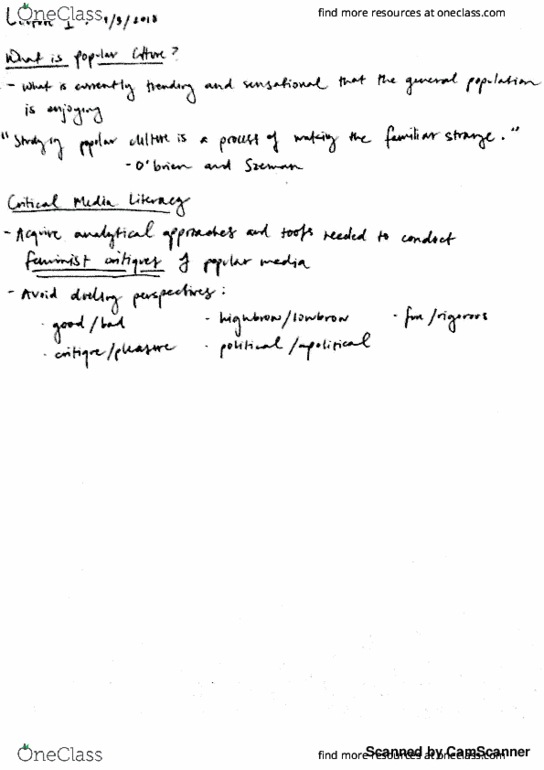 OneClass
find more resources at oneclass.com
Lecture 1 : 1/3/2018
What is popular Culture?
- what is currently trending and sensational that the general population
is enjoying
"Studying popular culture is a process of making the familiar strange."
- O'brien and Szeman
Critical Media Literacy
- Acquire analytical approaches and tools needed to conduct
feminist critiques of popular media
- Avoid dueling perspectives:
· good/bad · highbrow/lowbrow · fun/rigorous
· critique/pleasure · political/apolitical
OneClass
find more resources at oneclass.com
Scanned by CamScanner